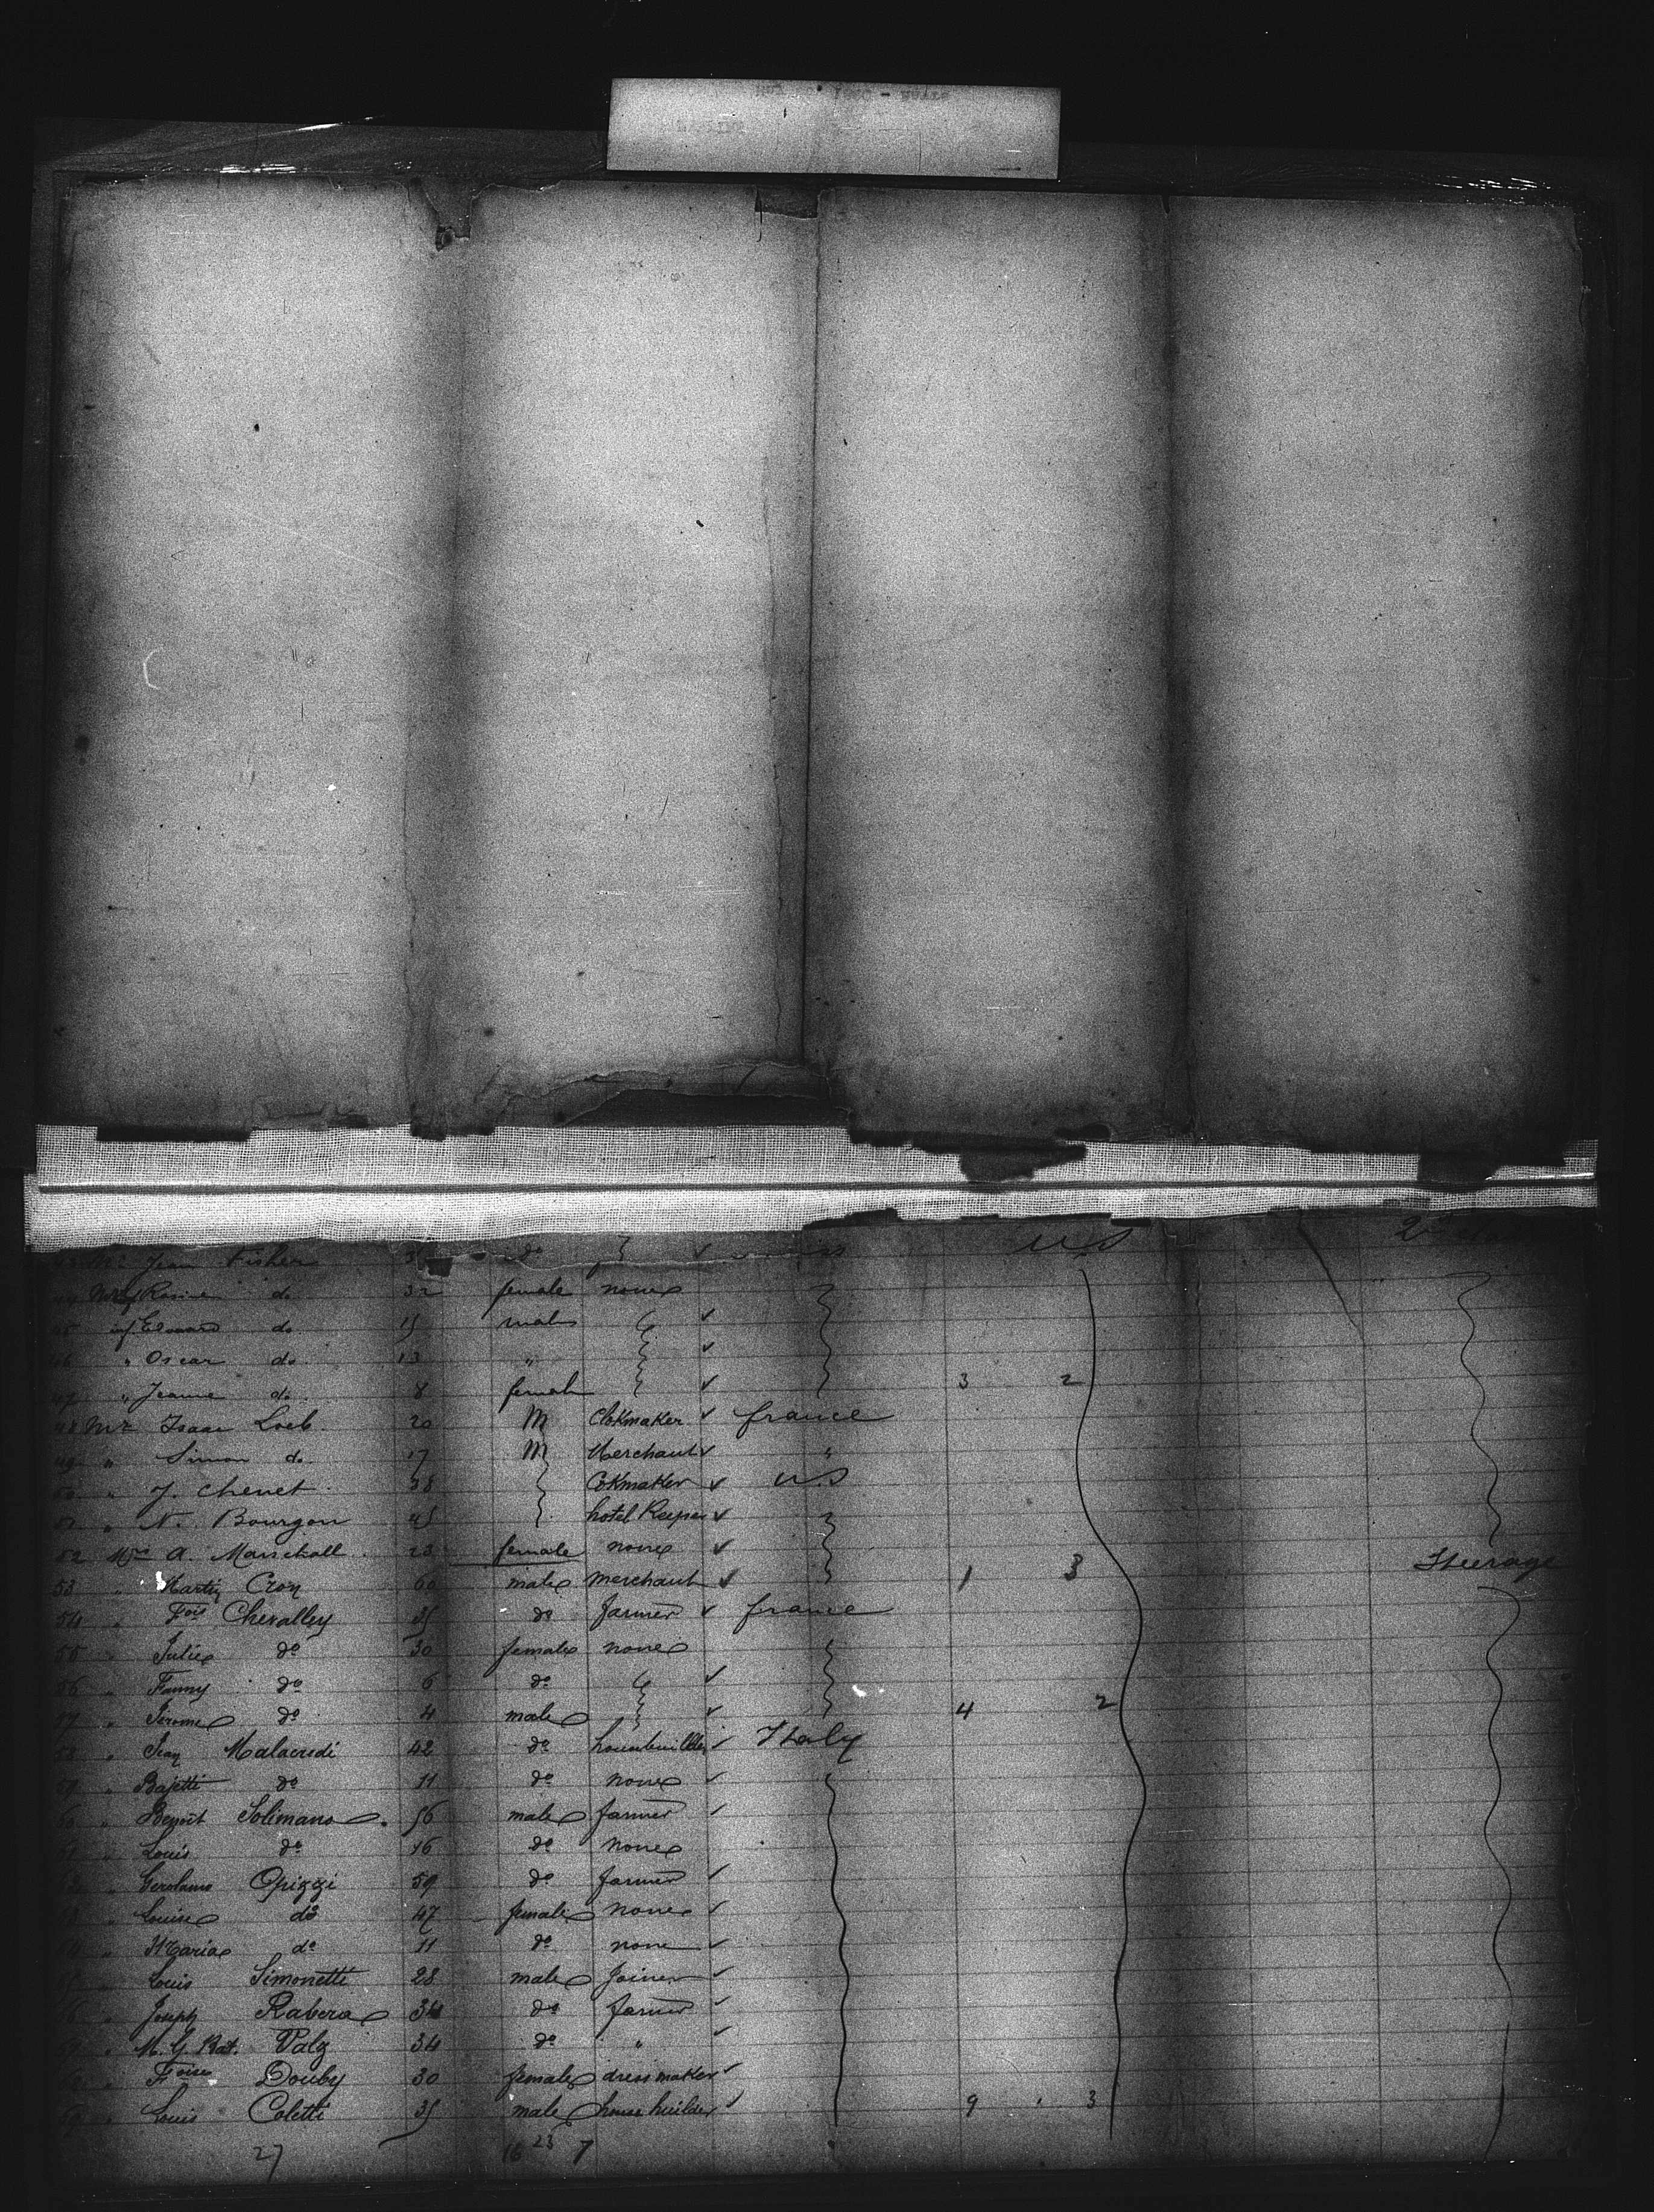 43 Mr Jean Fisher do U.S
Rosine do 32 female none
45 inf Edouard do 15 male
46 " Oscar do 13 "
47 " Jeanne do 8 female 3 2
48 Mr Isaac Loeb 20 M Clokmaker france
49 " Simon do 17 M Merchant "
50 " J. Chenet 38 Cokmaker U.S
51 " N. Bourgon 45 hotel Keeper
52 Mrs A. Marschall 23 female none Steerage
53 " Martin Cron 60 male merchant 1 3
54 " Fois Chevalley 35 do farmer france
55 " Julie do 30 female none
56 " Fanny do 6 do
57 " Jerome do 4 male 4 2
58 " Jean Malacridi 42 do Italy
59 " do 11 do none
60 " Benoit Solimano 56 male farmer
61 " Louis do 16 do none
" Gerolamo Opizzi 59 do farmer
" Louise do 47 female none
" Maria do 11 do none
" Louis Simonetti 28 male Joiner
" Joseph Rabera 34 do farmer
" M. G. Bat. Valz 34 do "
" Foise Douby 30 female dressmaker
" Louis Coletti 35 male house builder 9 3
27 16 23 7